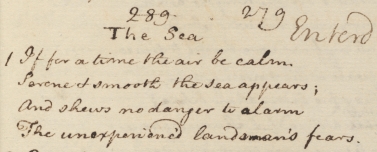 289. 279
The Sea Enterd
1 If for a time the air be calm.
Serene & smooth the sea appears;
And shews no danger to alarm
The unexperienc'd landsman's fears.